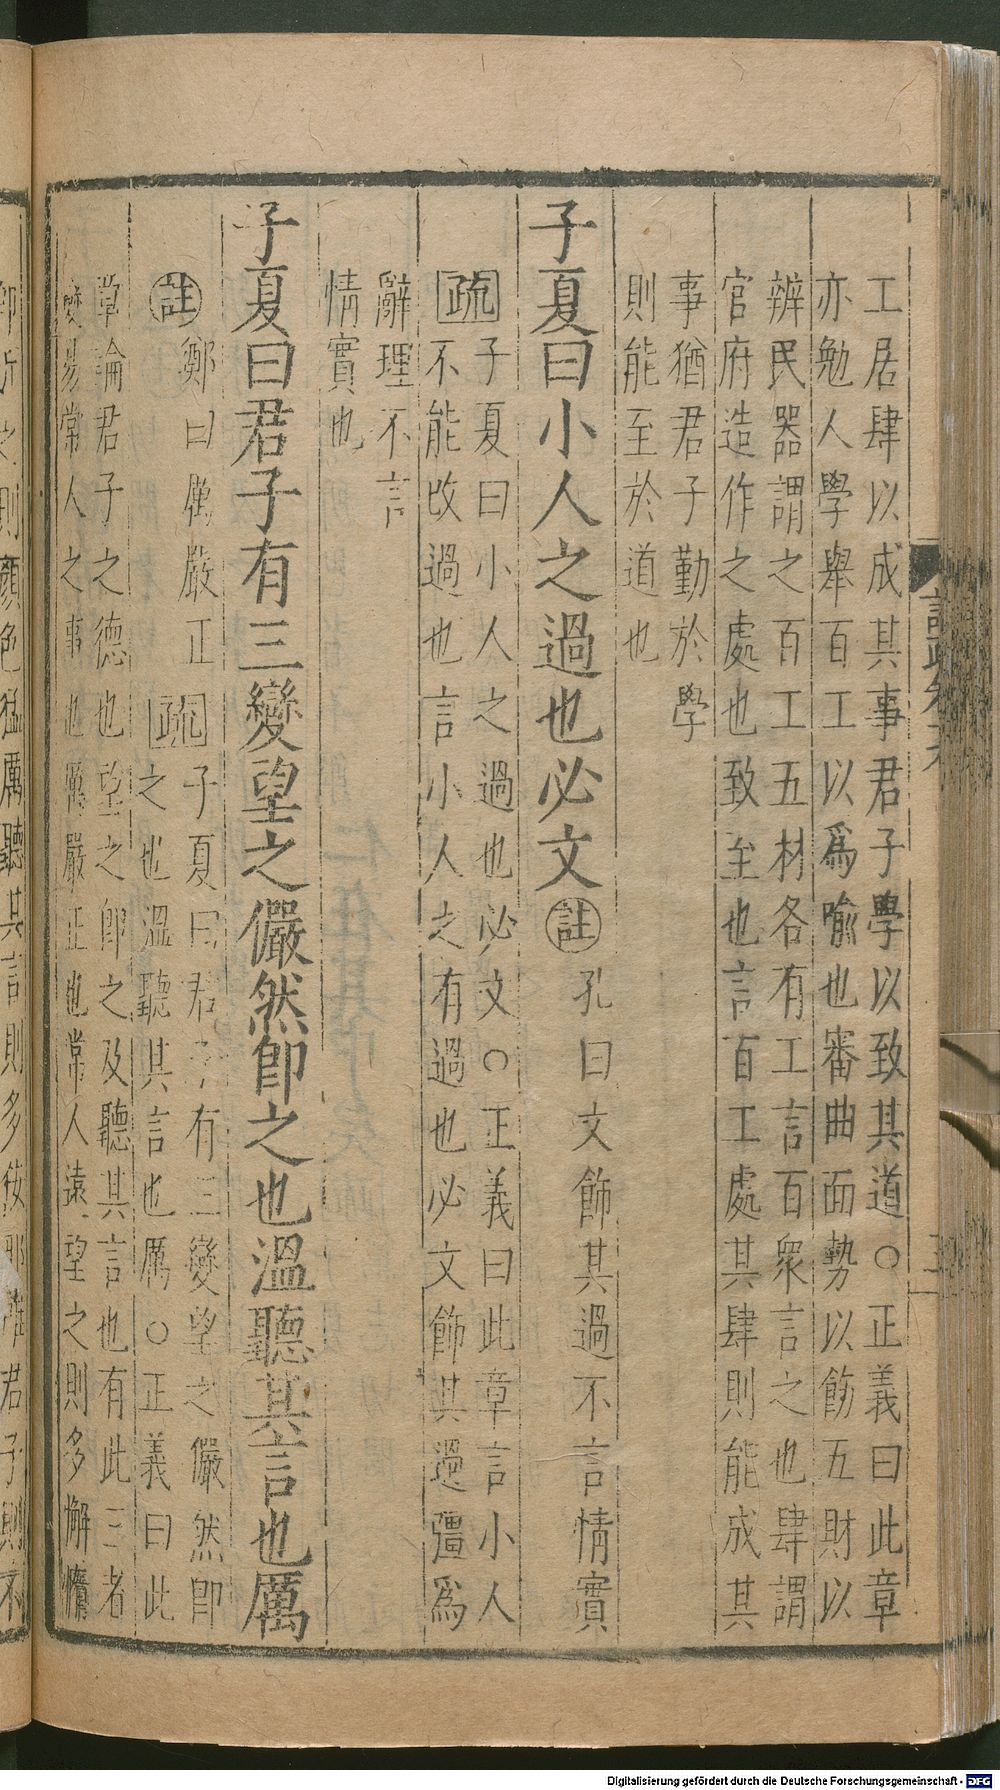 工居肆以成其事君子學以致其道○正義曰此章
亦勉人學舉百工以爲喻也審曲面勢以飭五財以
辨民器謂之百工五材各有工言百衆言之也肆謂
官府造作之處也致至也言百工處其肆則能成其
事猶君子勤於學
則能至於道也
子夏曰小人之過也必文註孔曰文飾其過不言情實
疏子夏曰小人之過也必文○正義曰此章言小人
不能改過也言小人之有過也必文飾其過彊爲
辭理不言
情實也
子夏曰君子有三變望之儼然卽之也溫聽其言也厲
註鄭曰厲嚴正疏子夏曰君子有三變望之儼然卽
之也溫聽其言也厲○正義曰此
章論君子之德也望之卽之及聽其言也有此三者
變易常人之事也厲嚴正也常人遠望之則多懈惰
卽近之則顏色猛厲聽其言則多佞邪唯君子則不
Digitalisierung gefördert durch die Deutsche Forschungsgemeinschaft - DFG